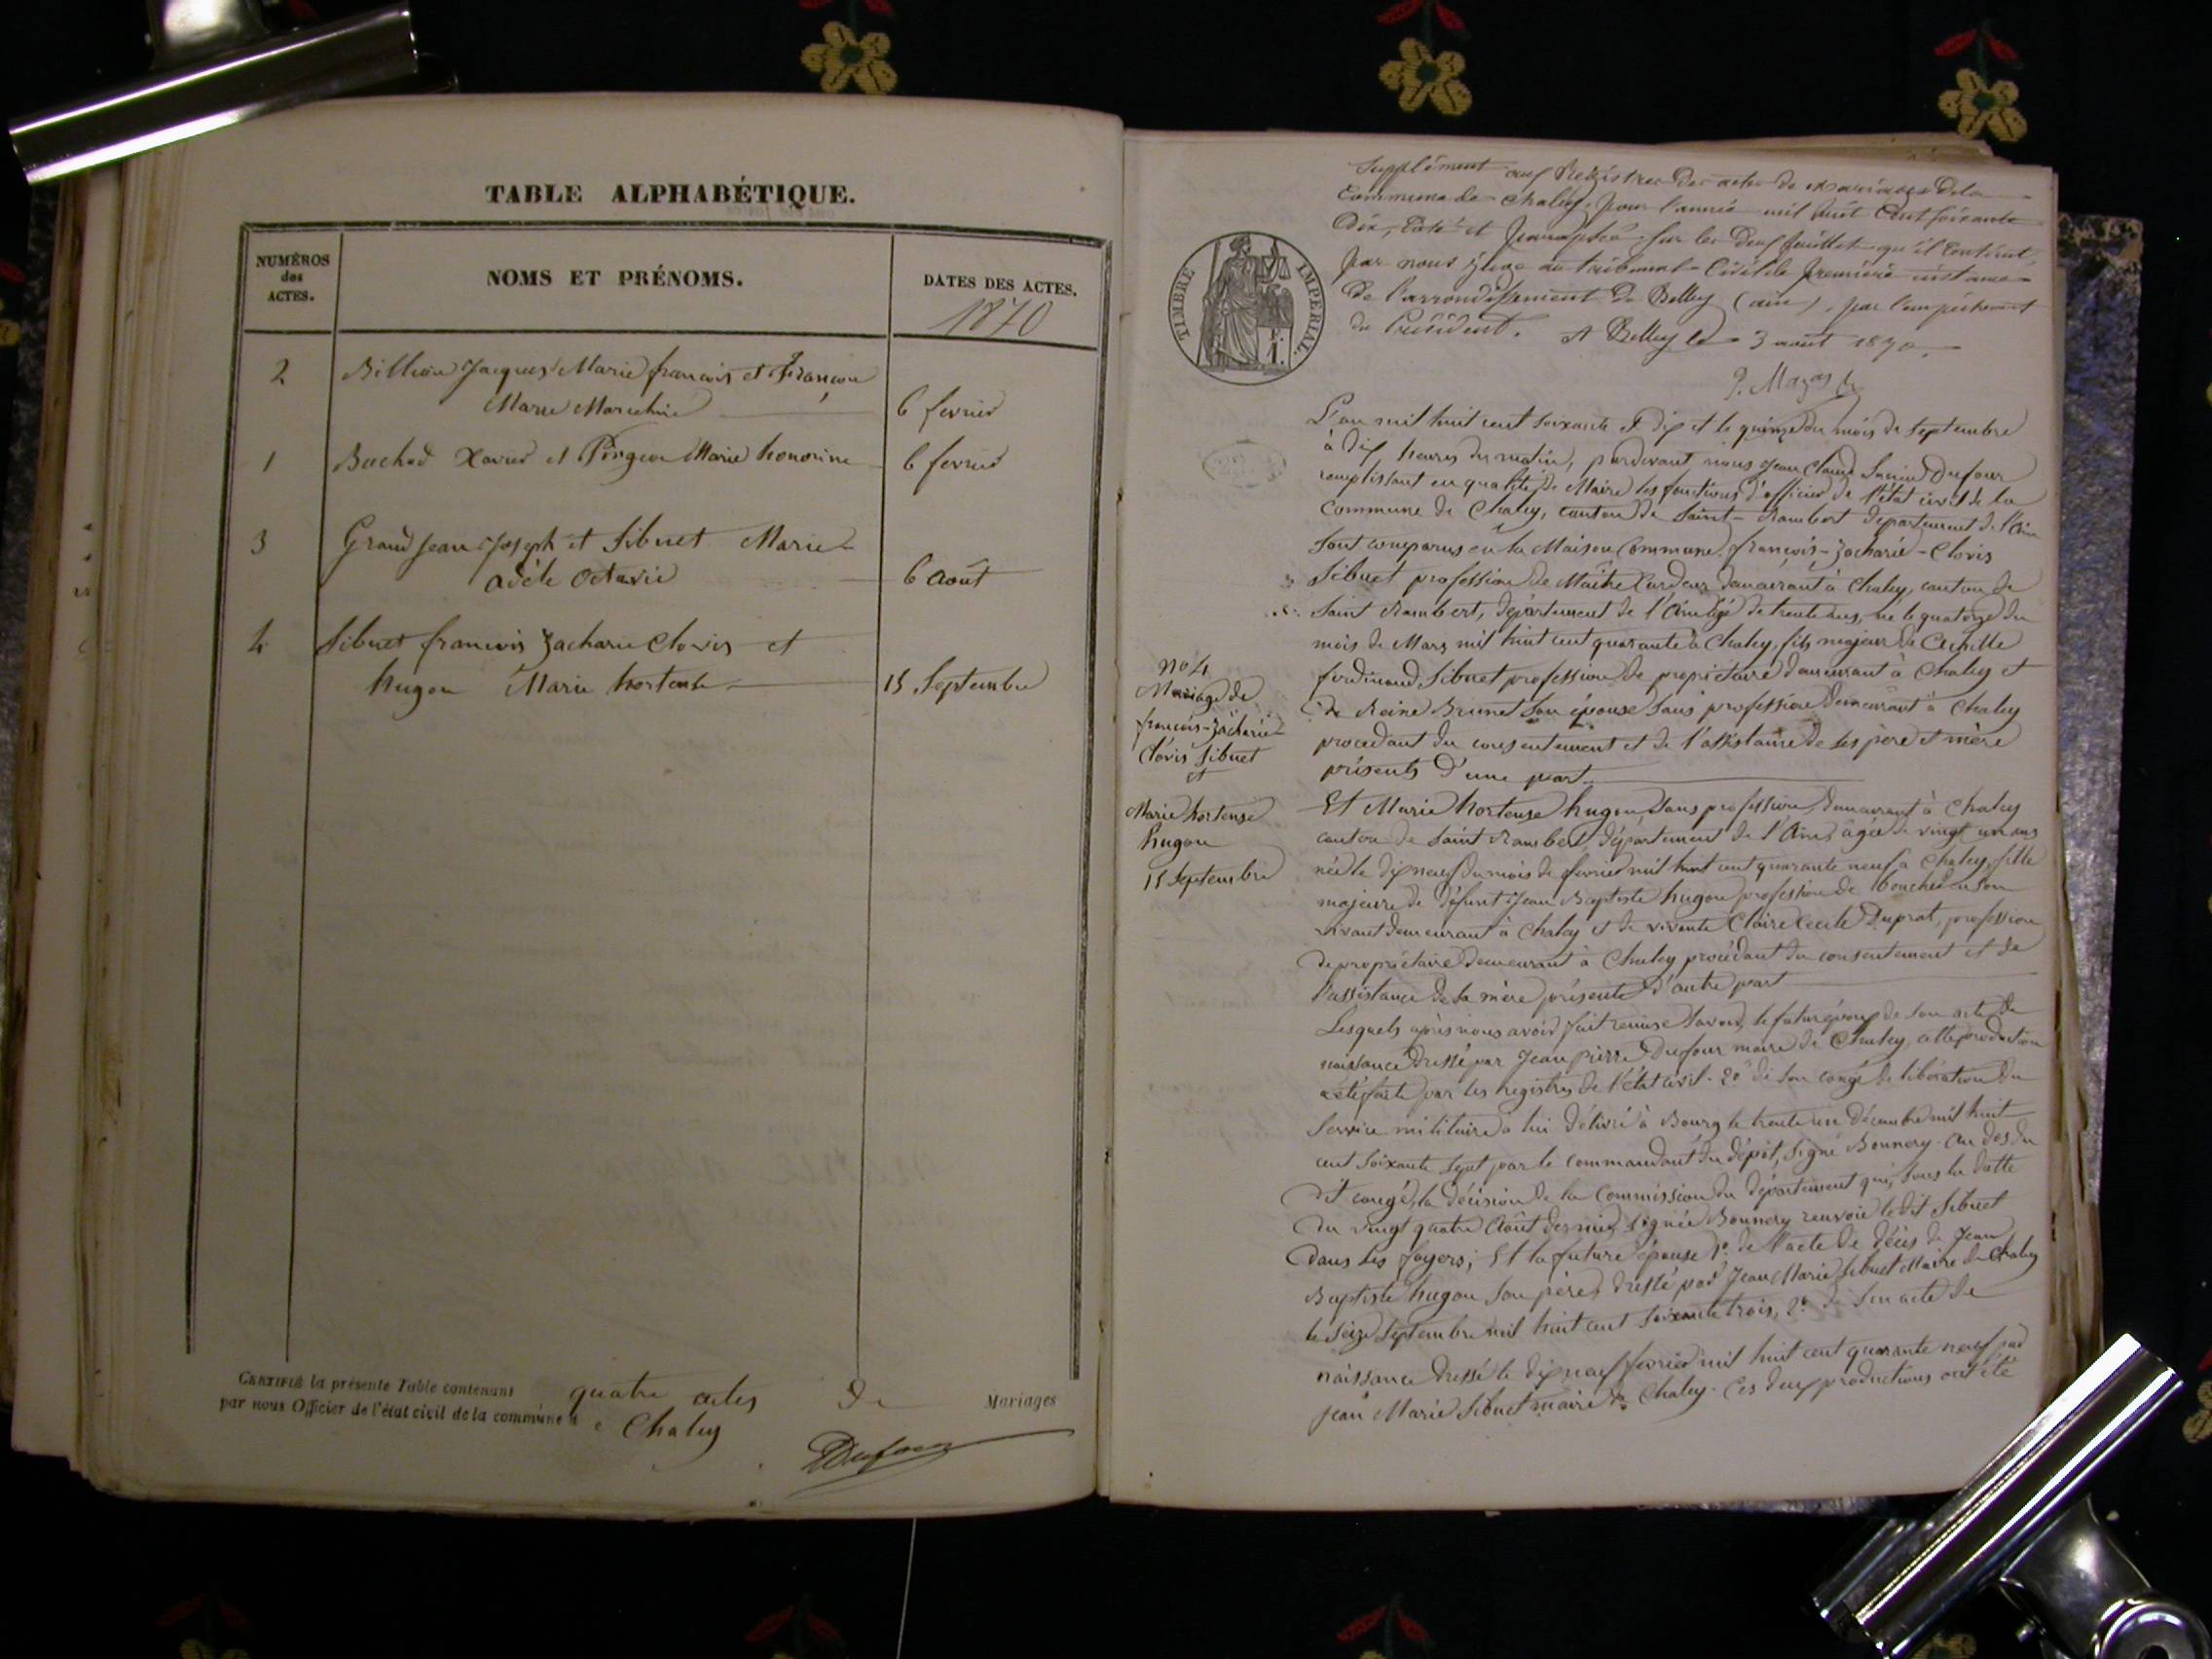 TABLE ALPHABÉTIQUE.
NUMÉROS
des
ACTES.
NOMS ET PRÉNOMS.
DATES DES ACTES.
1870
2 Billion Jacques Marie françois et
Marie 6 fevrier
1 Bachod Xavier et Pingeon Marie honorine 6 fevrier
3 Grandjean Joseph et Sibuet Marie
adèle octavie 6 Août
4 Sibuet francois Zacharie Clovis et
hugon Marie hortense 15 Septembre
CERTIFIÉ la présente Table contenant quatre actes de Mariages
par nous Officier de l'état civil de la commune de Chaley
Dufour
TIMBRE IMPÉRIAL.
1f.
Supplément aux Registres des actes de mariages de la
Commune de Chaley, pour l'année mil huit cent soixante
dix, Coté et paraphé sur les deux feuillets qu'il contient,
par nous Juge au tribunal Civil de première instance
de l'arrondissement de Belley (ain), par l'empêchement
du Président. A Belley le 3 août 1870.
L'an mil huit cent soixante et dix et le quinze du mois de Septembre
à dix heures du matin, pardevant nous Jean Claude Dufour
remplissant en qualité de Maire les fonctions d'officier de l'état civil de la
Commune de Chaley, canton de Saint-Rambert département de l'Ain
Sont comparus en la Maison Commune, françois-Zacharie-Clovis
Sibuet profession de Maître Cardeur demeurant à Chaley, canton de
Saint Rambert, département de l'Ain âgé de trente ans, né le quatorze du
mois de Mars mil huit cent quarante à Chaley, fils majeur de Achille
ferdinand Sibuet profession de propriétaire demeurant à Chaley et
de Reine Brunet Son épouse Sans profession demeurant à Chaley
procedant du consentement et de l'assistance de ses père et mère
présents d'une part
no 4
Mariage de
françois-Zacharie
Clovis Sibuet
et
Marie hortense
hugon
15 Septembre
Et Marie hortense hugon, Sans profession, demeurant à Chaley
canton de Saint Rambert, département de l'Ain, âgée de vingt un ans
née le dix neuf du mois de fevrier mil huit cent quarante neuf à Chaley, fille
majeure de défunt Jean Baptiste hugon profession de boucher en Son
vivant demeurant à Chaley et de vivante Claire Cecile Duprat, profession
de propriétaire demeurant à Chaley procédant du consentement et de
l'assistance de Sa mère présente d'autre part
Lesquels après nous avoir fait remise Savoir, le futur époux de Son acte de
naissance dressé par Jean Pierre Dufour maire de Chaley, cette production
a été faite par les registres de l'état civil. 2o de Son congé de libération du
Service militaire à lui délivré à Bourg le trente un Décembre mil huit
cent Soixante Sept par le commandant du dépôt, Signé Bonnery. au dos du
dit congé, la décision de la Commission du département qui, Sous la datte
du vingt quatre Août dernier, Signée Bonnery renvoie le dit Sibuet
dans Ses foyers; Et la future épouse 1o de l'acte de décès de Jean
Baptiste hugon Son père, dressé par Jean Marie Sibuet Maire de Chaley
le Seize Septembre mil huit cent Soixante trois, 2o de Son acte de
naissance dressé le dix neuf fevrier mil huit cent quarante neuf par
Jean Marie Sibuet maire de Chaley. Ces deux productions ont été